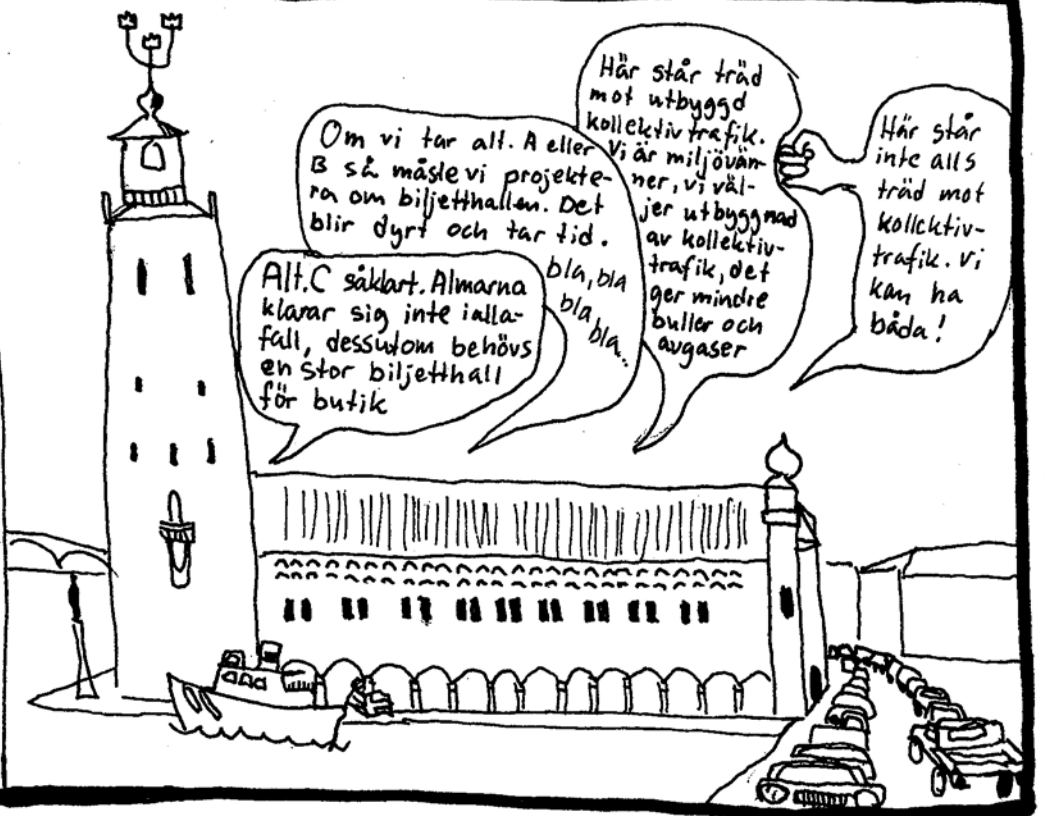 Alt.C såklart. Almarna
klarar sig inte ialla-
fall, dessutom behövs
en stor biljetthall
för butik
Om vi tar alt. A eller
B så måste vi projekte-
ra om biljetthallen. Det
blir dyrt och tar tid.
bla, bla
bla
bla...
Här står träd
mot utbyggd
kollektivtrafik.
Vi är miljövän-
ner, vi väl-
jer utbyggnad
av kollektiv-
trafik, det
ger mindre
buller och
avgaser
Här står
inte alls
träd mot
kollektiv-
trafik. Vi
kan ha
båda!